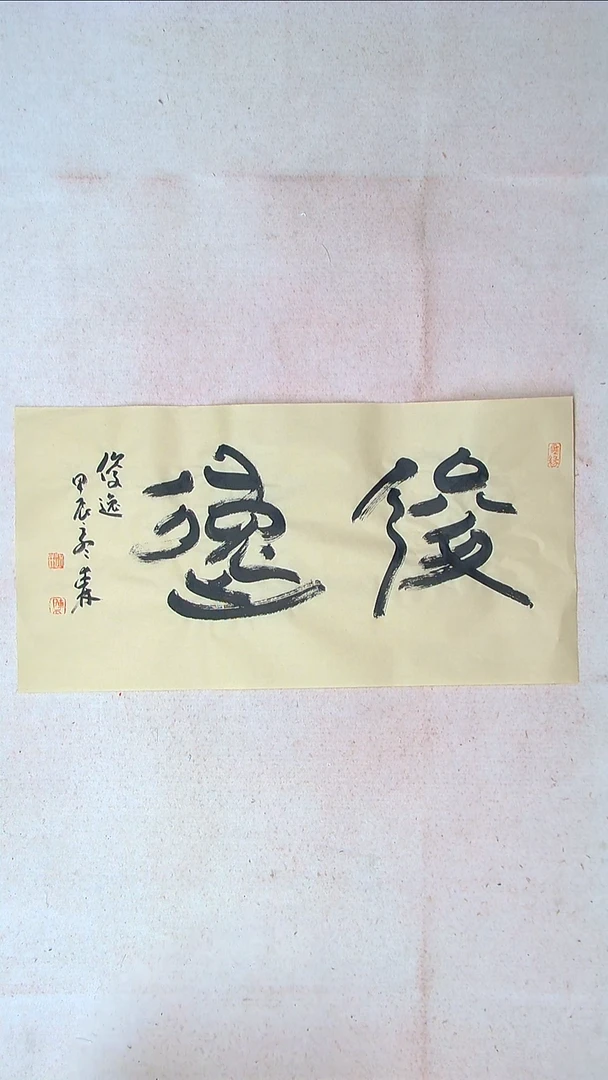 俊逸
俊逸
甲辰冬